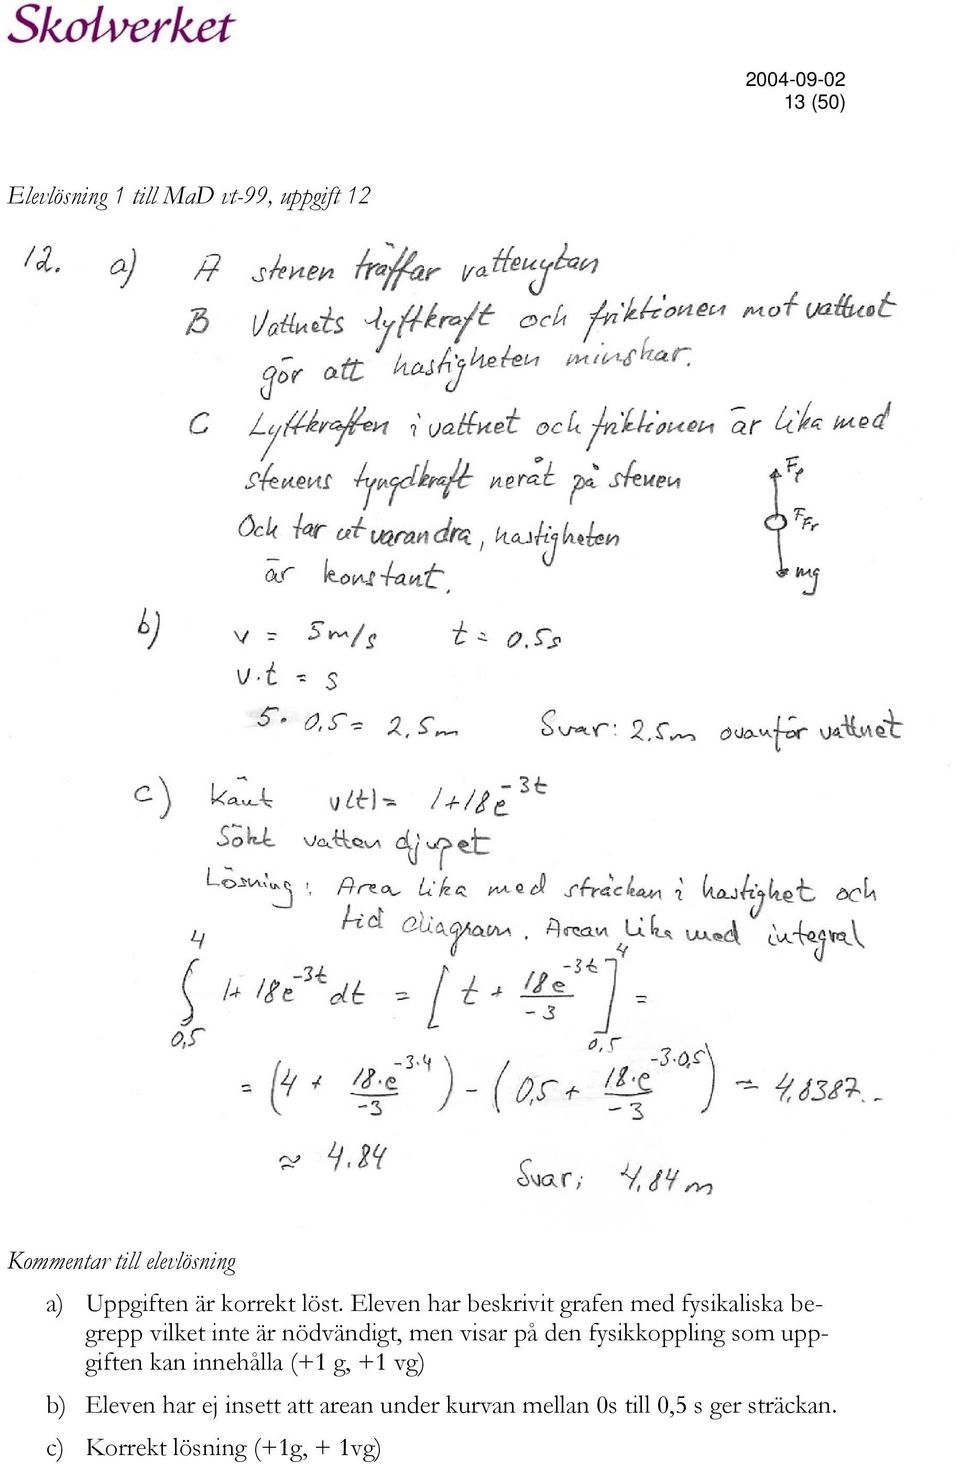 Skolverket
2004-09-02
13 (50)
Elevlösning 1 till MaD vt-99, uppgift 12
12. a) A stenen träffar vattenytan
B Vattnets lyftkraft och friktionen mot vattnet
gör att hastigheten minskar.
C Lyftkraften i vattnet och friktionen är lika med
stenens tyngdkraft neråt på stenen
Och tar ut varandra, hastigheten
är konstant.
F_l
F_Fr
mg
b) v = 5m/s t = 0.5s
v·t = s
5·0,5 = 2,5m Svar: 2.5m ovanför vattnet
c) Känt v(t) = 1+18e^-3t
Sökt vatten djupet
Lösning: Area lika med sträckan i hastighet och
tid diagram. Arean lika med integral
∫_0,5^4 1+18e^-3t dt = [t + 18e^-3t/-3]_0,5^4 =
= (4 + 18·e^-3·4/-3) - (0,5 + 18·e^-3·0,5/-3) = 4,8387..
≈ 4.84 Svar; 4,84m
Kommentar till elevlösning
a) Uppgiften är korrekt löst. Eleven har beskrivit grafen med fysikaliska be-
grepp vilket inte är nödvändigt, men visar på den fysikkoppling som upp-
giften kan innehålla (+1 g, +1 vg)
b) Eleven har ej insett att arean under kurvan mellan 0s till 0,5 s ger sträckan.
c) Korrekt lösning (+1g, + 1vg)